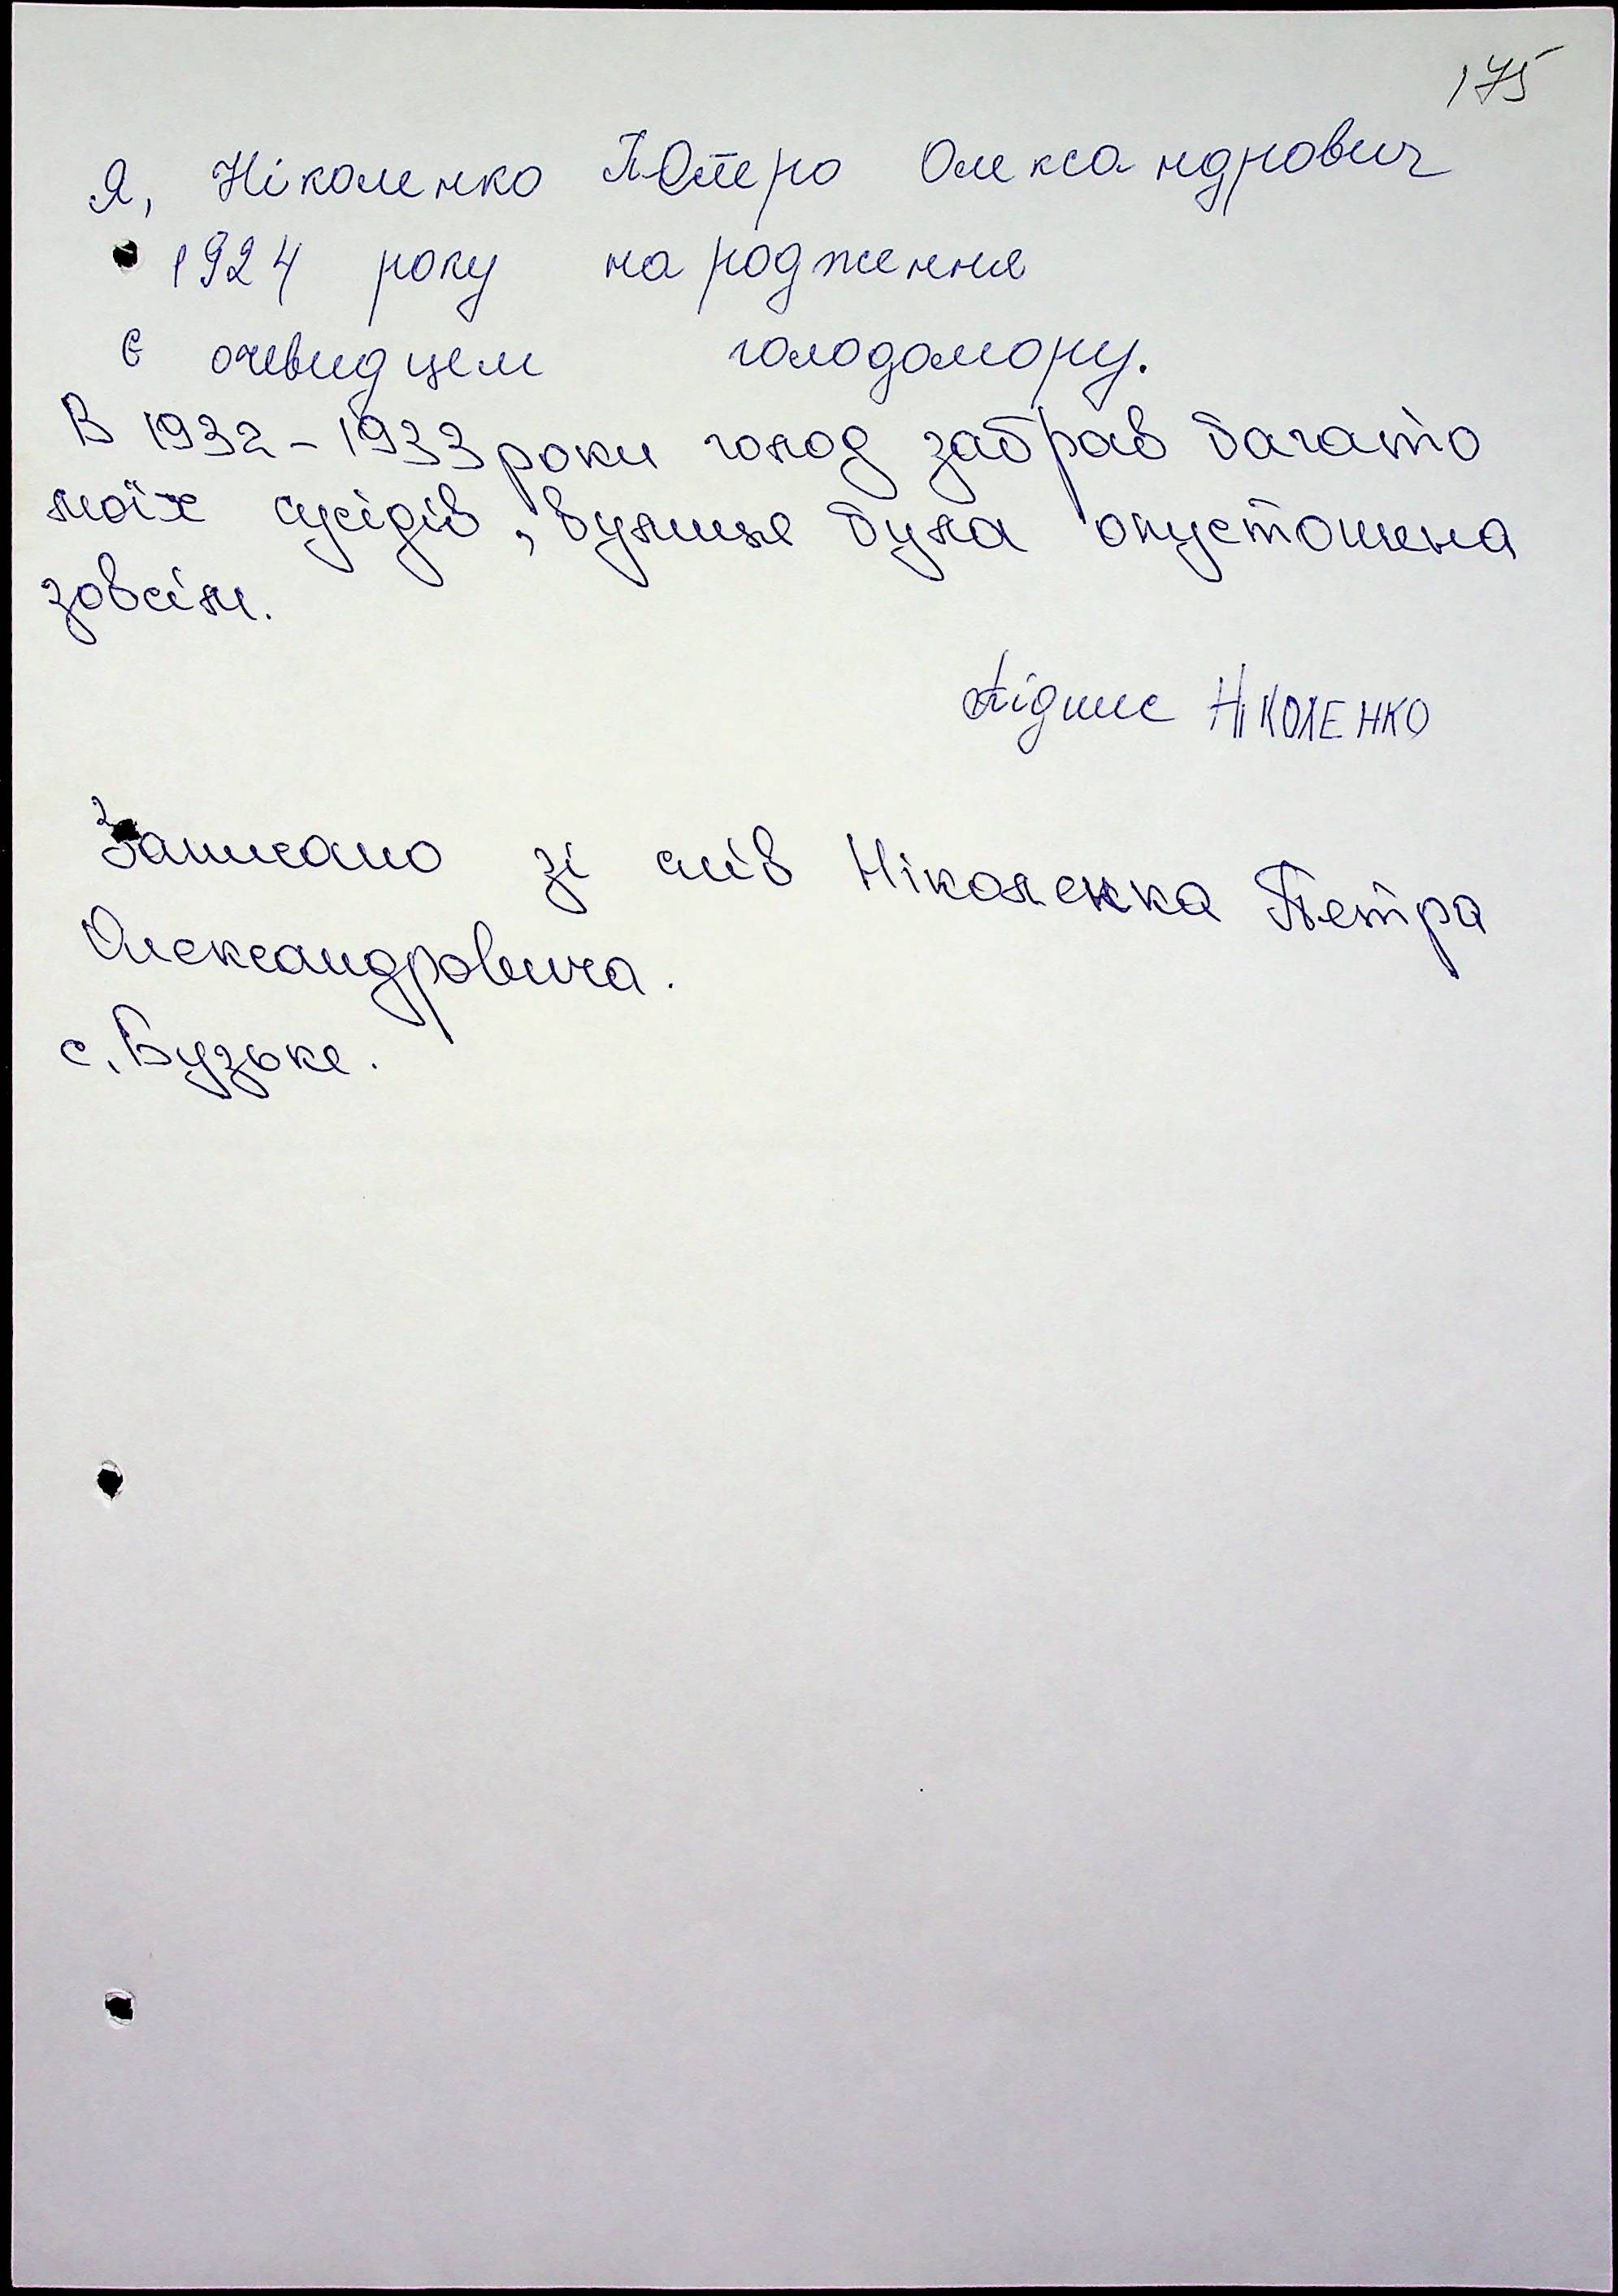 175
Я, Ніколенко Петро Олександрович
1924 року народження
є очевидцем голодомору.
В 1932-1933 роки голод забрав багато
моїх сусідів, вулиця була опустошена
зовсім.
підпис НІКОЛЕНКО
Записано зі слів Ніколенка Петра
Олександровича.
с. Бузьке.